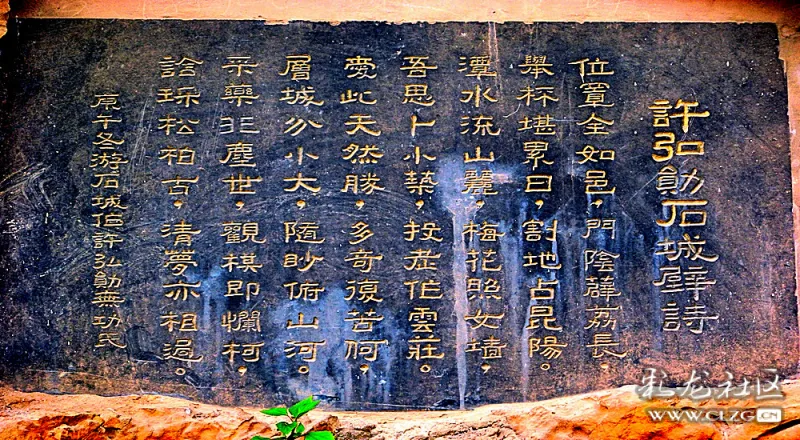 許弘勛石城壁詩
位置全如邑，門陰薜荔長，
舉杯堪累日，割地占昆陽。
潭水流山麓，梅花照女墻，
吾思卜小築，投老作雲莊。
愛此天然勝，多奇復苦何，
層城分小大，隨眇俯山河。
采藥非塵世，觀棋即爛柯，
診琛松柏古，清夢亦相過。
庚午冬游石城伯許弘勛無功氏
彩龙社区
WWW.CLZG.CN